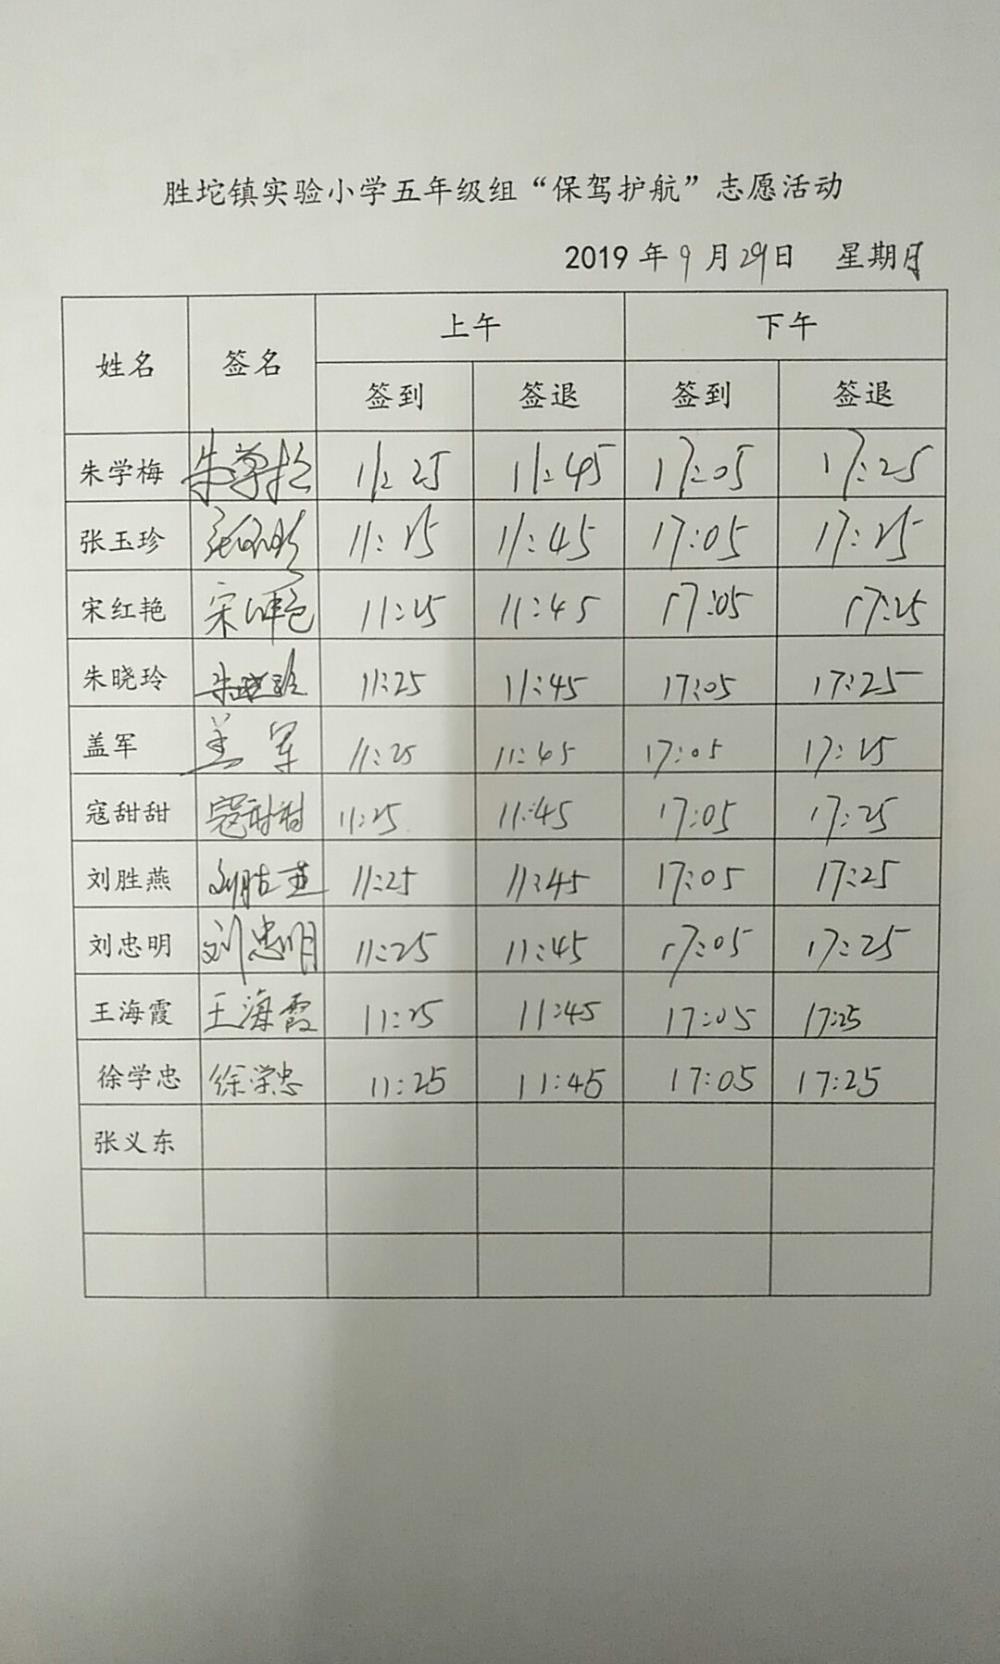 胜坨镇实验小学五年级组“保驾护航”志愿活动
2019 年 9 月 29 日 星期日
姓名 签名 上午 下午
签到 签退 签到 签退
朱学梅 朱学梅 11:25 11:45 17:05 17:25
张玉珍 张玉珍 11:25 11:45 17:05 17:25
宋红艳 宋红艳 11:25 11:45 17:05 17:25
朱晓玲 朱晓玲 11:25 11:45 17:05 17:25
盖军 盖军 11:25 11:45 17:05 17:25
寇甜甜 寇甜甜 11:25 11:45 17:05 17:25
刘胜燕 刘胜燕 11:25 11:45 17:05 17:25
刘忠明 刘忠明 11:25 11:45 17:05 17:25
王海霞 王海霞 11:25 11:45 17:05 17:25
徐学忠 徐学忠 11:25 11:45 17:05 17:25
张义东